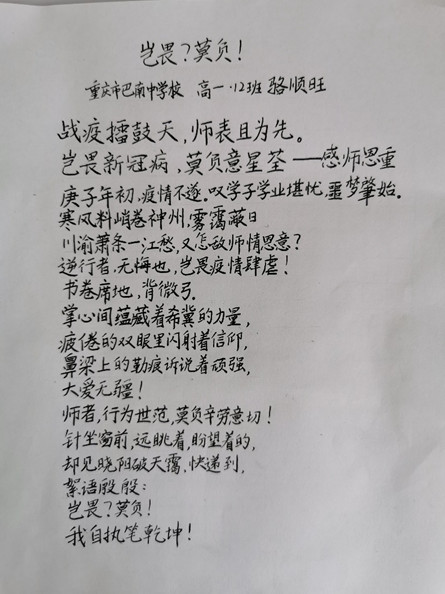 岂畏？莫负！
重庆市巴南中学校 高一·12班 骆顺旺
战疫擂鼓天，师表且为先。
岂畏新冠病，莫负意星荃——感师恩重
庚子年初，疫情不遂。叹学子学业堪忧，噩梦肇始。
寒风料峭卷神州，雾霭蔽日
川渝萧条一江愁，又怎敌师情恩意？
逆行者，无悔也，岂畏疫情肆虐！
书卷席地，背微弓。
掌心间蕴藏着希冀的力量，
疲倦的双眼里闪射着信仰，
鼻梁上的勒痕诉说着顽强，
大爱无疆！
师者，行为世范，莫负辛劳意切！
针坐窗前，远眺着，盼望着的，
却见晓阳破天霭，快递到，
絮语殷殷：
岂畏？莫负！
我自执笔乾坤！